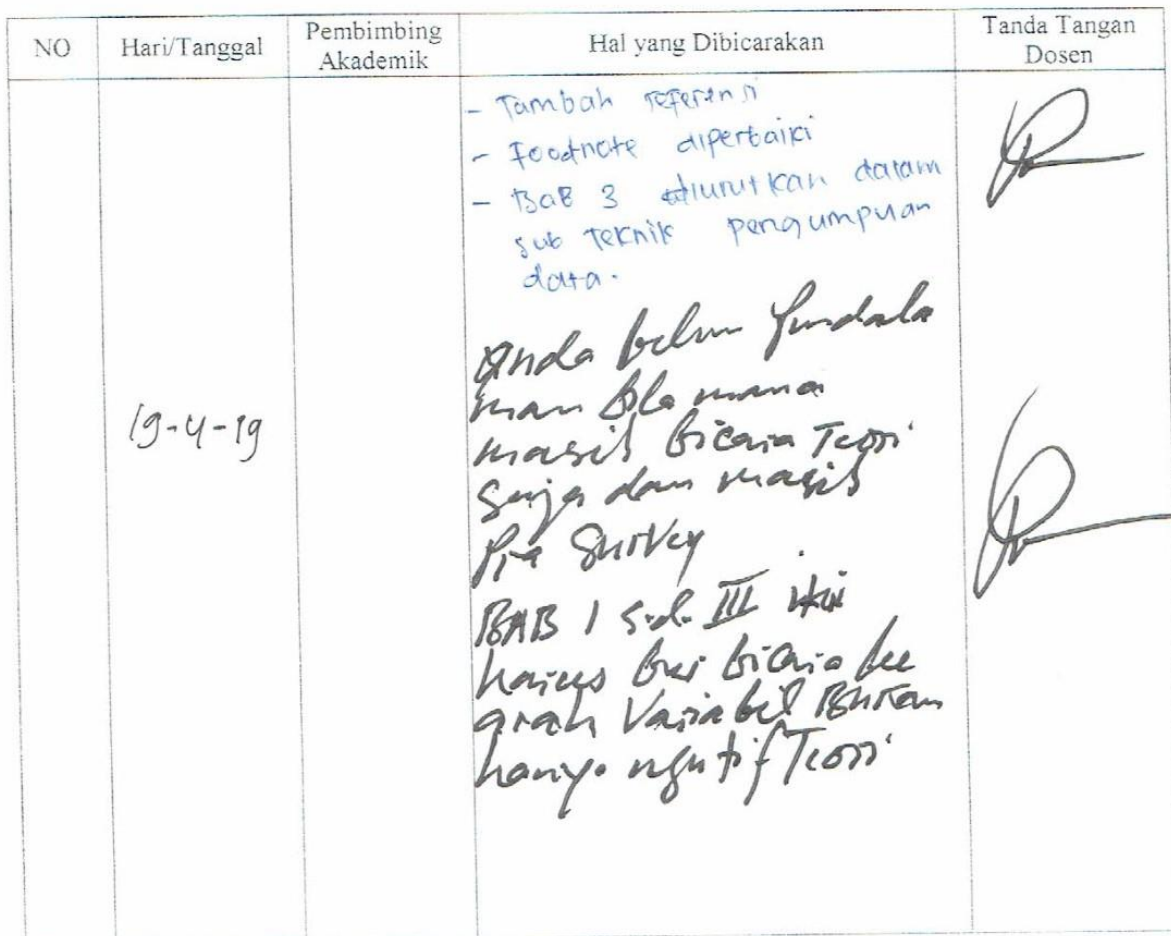 NO
Hari/Tanggal
Pembimbing
Akademik
Hal yang Dibicarakan
Tanda Tangan
Dosen
- Tambah referensi
- Footnote diperbaiki
- Bab 3 diurutkan dalam
sub Teknik pengumpuan
data.
19-4-19
Anda belum
mana
masih bicara Teori
saja dan masih
Pra Survey
BAB I s.d. III ini
harus bicara ke
arah Variabel Bukan
hanya ngutif Teori